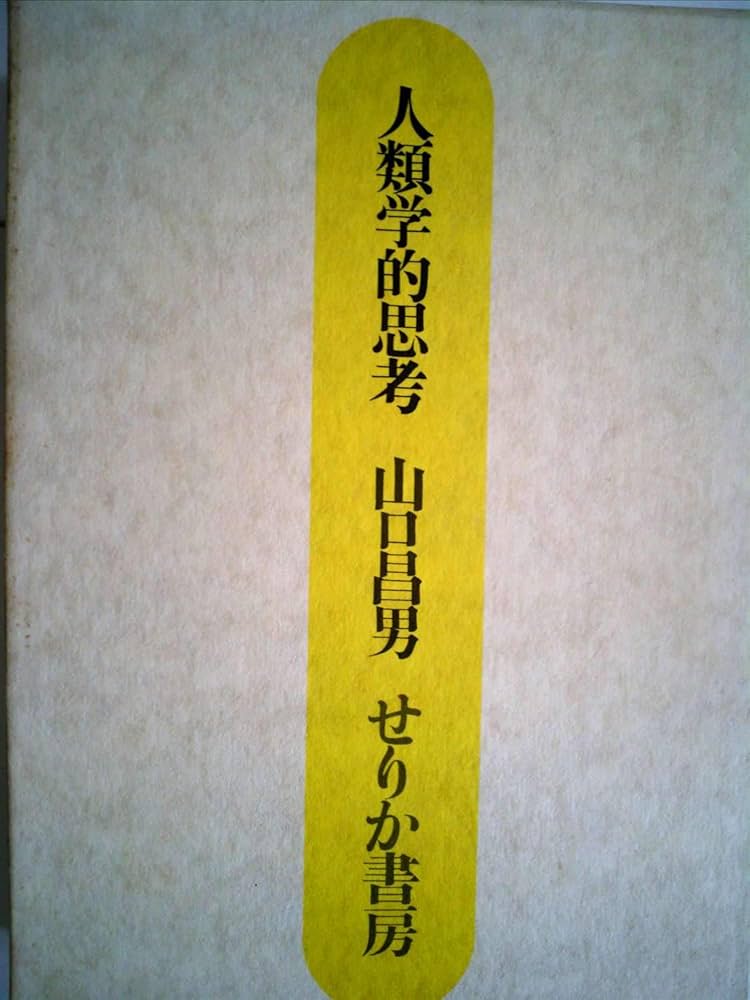 人類学的思考 山口昌男 せりか書房